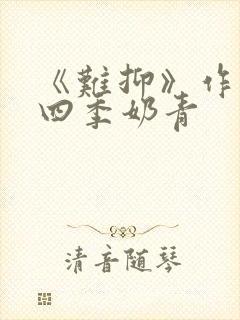 《難抑》作
四季奶青
清音随琴